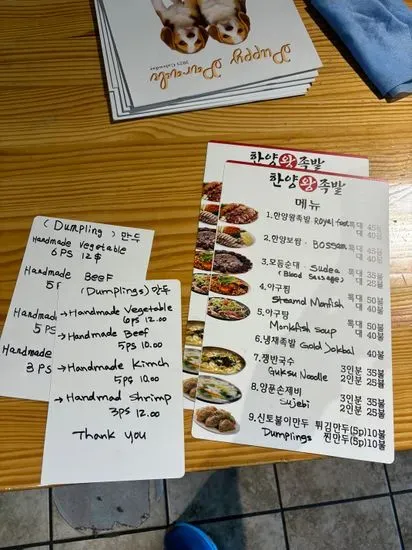 Puppy Parade
2025 Calendar
한양왕족발
한양왕족발
메뉴
1. 한양왕족발 Royal foot 특대 45불
대 40불
2. 한양보쌈 · Bossam 특대 45불
대 40불
3. 모듬순대 · Sudea 특대 35불
(Blood Sausage) 대 25불
4. 아구찜 특대 50불
Steamd Monfish 대 40불
5. 아구탕 특대 50불
Monkfish soup 대 40불
6. 냉채족발 Gold Jokbal 40불
7. 쟁반국수 3인분 35불
Guksu Noodle 2인분 25불
8. 얌푼손제비 3인분 35불
Sujebi 2인분 25불
9. 신토불이만두 튀김만두(5p)10불
Dumplings 찐만두(5p)10불
(Dumpling) 만두
Handmade Vegetable
6PS 12$
Handmade BEEF
5P
Handmade
5PS
Handmade
3PS
(Dumplings) 만두
→Handmade Vegetable
6ps 12.00
→Handmade Beef
5ps 10.00
→Handmade Kimch
5ps 10.00
→Handmad Shrimp
3ps 12.00
Thank you